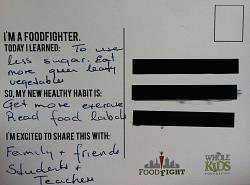 I'M A FOODFIGHTER.
TODAY I LEARNED: To use
less sugar. Eat
more green leafy
vegetables
SO, MY NEW HEALTHY HABIT IS:
Get more exercise
Read food labels
I'M EXCITED TO SHARE THIS WITH:
Family + friends
Students +
Teachers
FOODFIGHT
WHOLE
KIDS
FOUNDATION